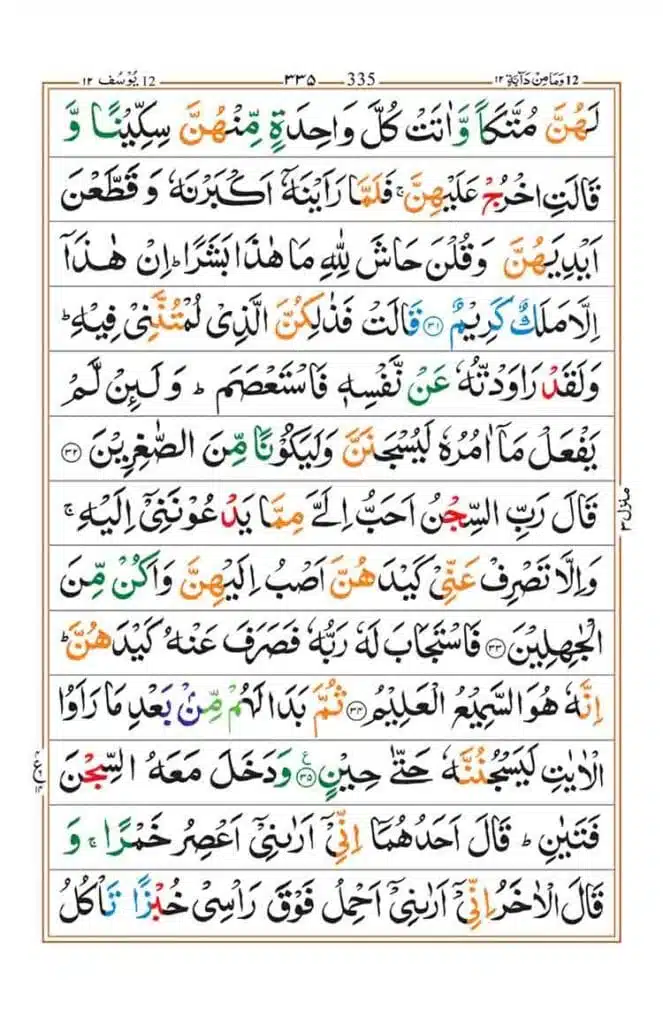 12 يُوْسُف ١٢ ٣٣٥ 335 12 وَمَا مِنْ دَآبَّةٍ ١٢
لَهُنَّ مُتَّكَاً وَّاٰتَتْ كُلَّ وَاحِدَةٍ مِّنْهُنَّ سِكِّيْنًا وَّ
قَالَتِ اخْرُجْ عَلَيْهِنَّ ۚ فَلَمَّا رَاَيْنَهٗۤ اَكْبَرْنَهٗ وَ قَطَّعْنَ
اَيْدِيَهُنَّ وَقُلْنَ حَاشَ لِلّٰهِ مَا هٰذَا بَشَرًا ؕ اِنْ هٰذَاۤ
اِلَّا مَلَكٌ كَرِيْمٌ ﴿۳۱﴾ قَالَتْ فَذٰلِكُنَّ الَّذِيْ لُمْتُنَّنِيْ فِيْهِ ؕ
وَلَقَدْ رَاوَدْتُّهٗ عَنْ نَّفْسِهٖ فَاسْتَعْصَمَ ؕ وَ لَىِٕنْ لَّمْ
يَفْعَلْ مَاۤ اٰمُرُهٗ لَيُسْجَنَنَّ وَلَيَكُوْنًا مِّنَ الصّٰغِرِيْنَ ﴿۳۲﴾
قَالَ رَبِّ السِّجْنُ اَحَبُّ اِلَيَّ مِمَّا يَدْعُوْنَنِيْۤ اِلَيْهِ ۚ
وَاِلَّا تَصْرِفْ عَنِّيْ كَيْدَهُنَّ اَصْبُ اِلَيْهِنَّ وَاَكُنْ مِّنَ
الْجٰهِلِيْنَ ﴿۳۳﴾ فَاسْتَجَابَ لَهٗ رَبُّهٗ فَصَرَفَ عَنْهُ كَيْدَهُنَّ ؕ
اِنَّهٗ هُوَ السَّمِيْعُ الْعَلِيْمُ ﴿۳۴﴾ ثُمَّ بَدَا لَهُمْ مِّنْۢ بَعْدِ مَا رَاَوُا
الْاٰيٰتِ لَيَسْجُنُنَّهٗ حَتّٰى حِيْنٍ ﴿۳۵﴾ وَدَخَلَ مَعَهُ السِّجْنَ
فَتَيٰنِ ؕ قَالَ اَحَدُهُمَاۤ اِنِّيْۤ اَرٰىنِيْۤ اَعْصِرُ خَمْرًا ۚ وَ
قَالَ الْاٰخَرُ اِنِّيْۤ اَرٰىنِيْۤ اَحْمِلُ فَوْقَ رَاْسِيْ خُبْزًا تَاْكُلُ
منزل ٣